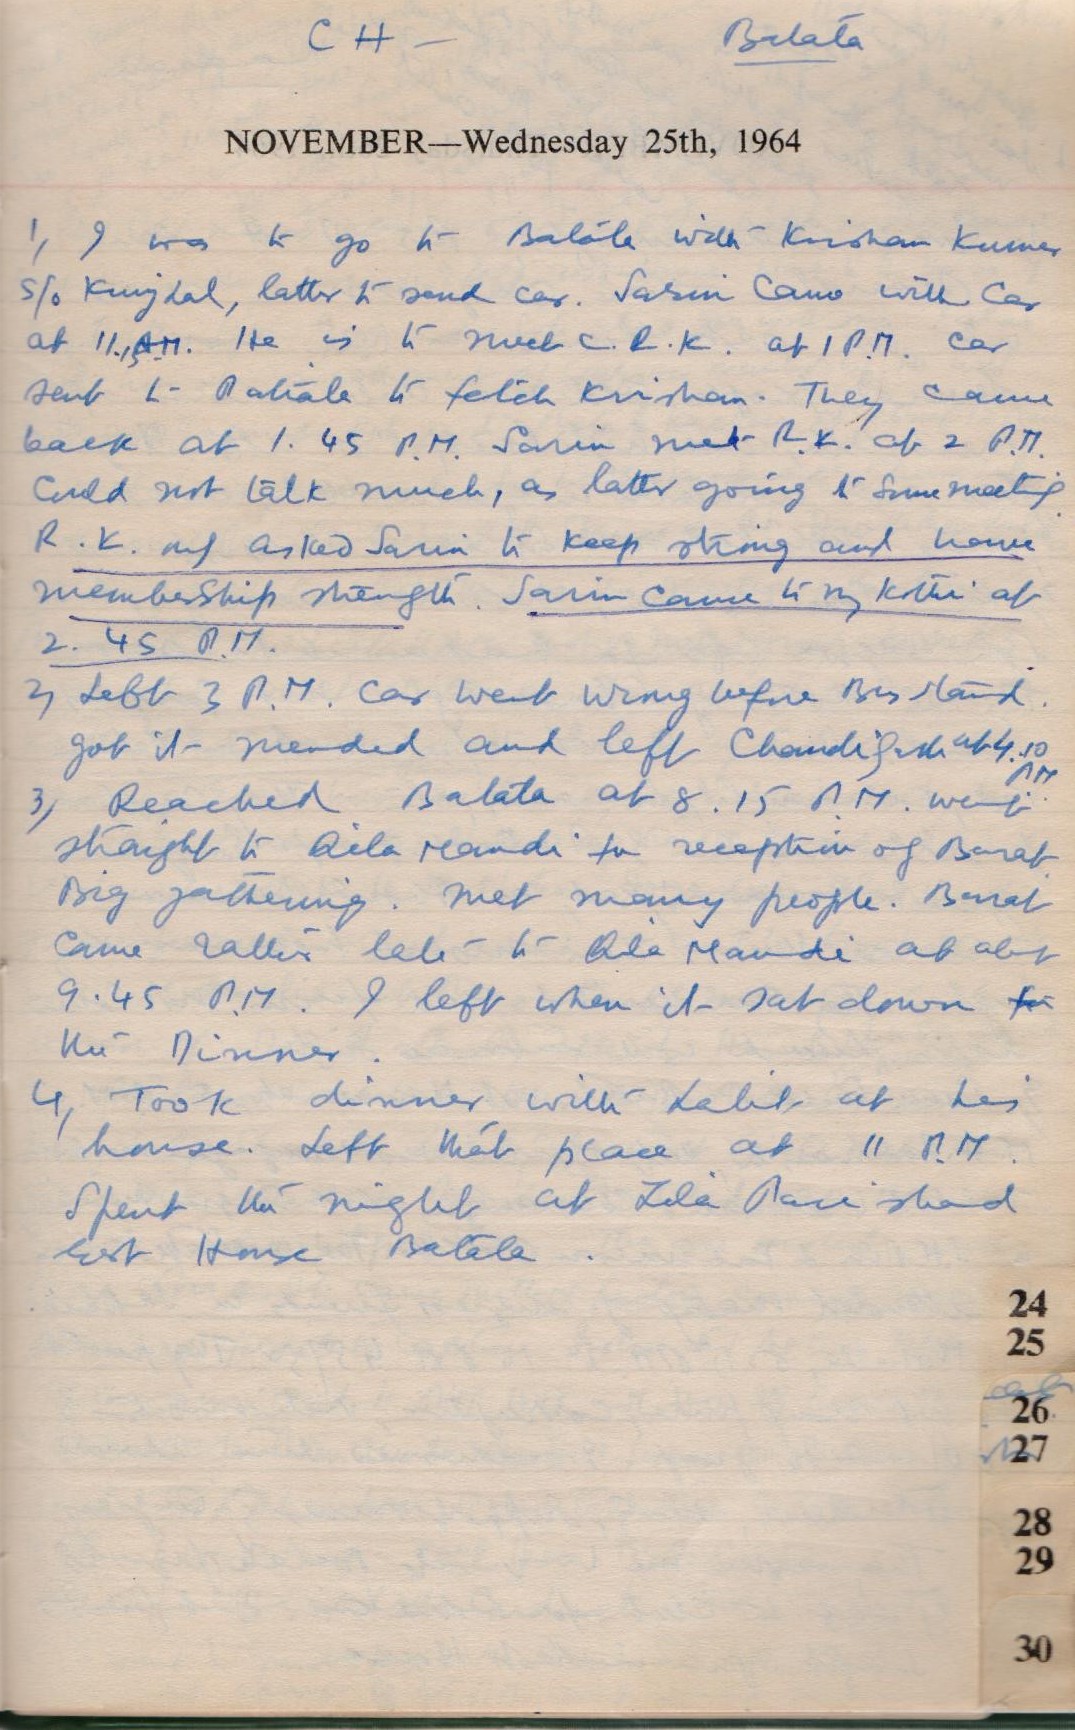 CH — Batala
NOVEMBER—Wednesday 25th, 1964
1, I was to go to Batala with Krishan Kumar
S/o Kunj Lal, latter to send car. Sarin Came with Car
at 11. A.M. He is to meet C. R.K. at 1 P.M. Car
sent to Patiala to fetch Krishan. They came
back at 1.45 P.M. Sarin met R.K. at 2 P.M.
Could not talk much, as latter going to some meeting.
R.K. only asked Sarin to keep strong and have
membership strength. Sarin came to my Kothi at
2.45 P.M.
2, Left 3 P.M. Car went wrong before Bus stand.
got it mended and left Chandigarh at 4.10
P.M.
3, Reached Batala at 8.15 P.M. went
straight to Qila Mandi for reception of Barat.
Big gathering. Met many people. Barat
Came rather late to Qila Mandi at abt
9.45 P.M. I left when it sat down for
the Dinner.
4, Took dinner with Lalit at his
house. Left that place at 11 P.M.
Spent the night at Zila Parishad
Rest House Batala.
24
25
26
27
28
29
30